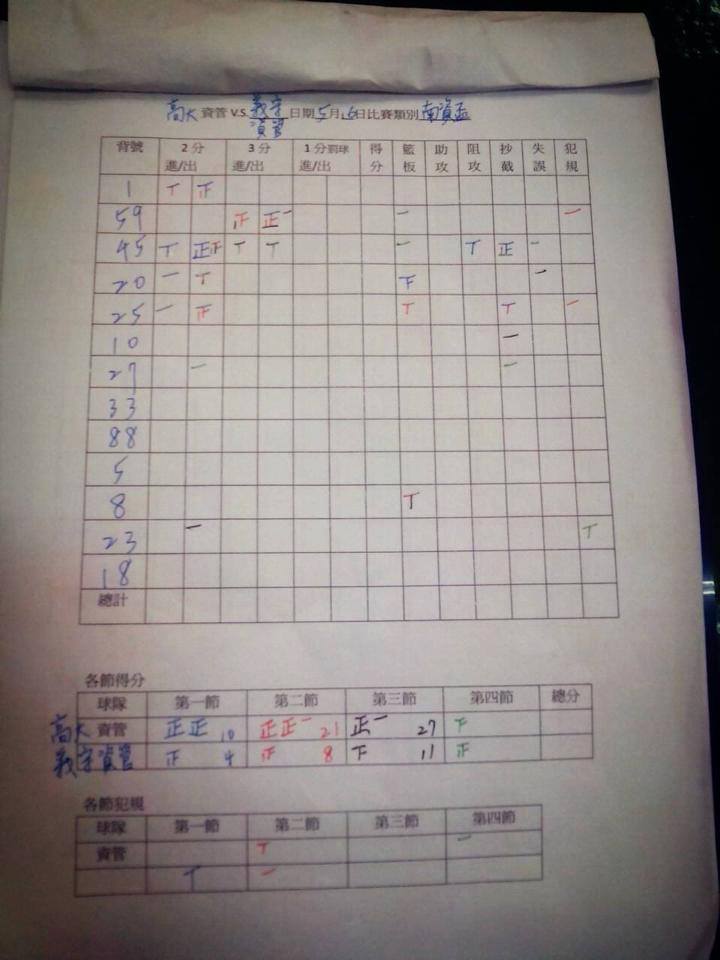 高大資管 V.S. 義守資管 日期5月16日比賽類別南資盃
背號 2分進/出 3分進/出 1分罰球進/出 得分 籃板 助攻 阻攻 抄截 失誤 犯規
1 T 正
59 正 正一 一 一
45 T 正正 T T 一 T 正 一
20 一 T 下 一
25 一 正 T T 一
10 一
27 一 一
33
88
5
8 T
23 一 T
18
總計
各節得分
球隊 第一節 第二節 第三節 第四節 總分
高大資管 正正 10 正正一 21 正一 27 下
義守資管 正 4 正 8 下 11 正
各節犯規
球隊 第一節 第二節 第三節 第四節
資管 T 一
T 一